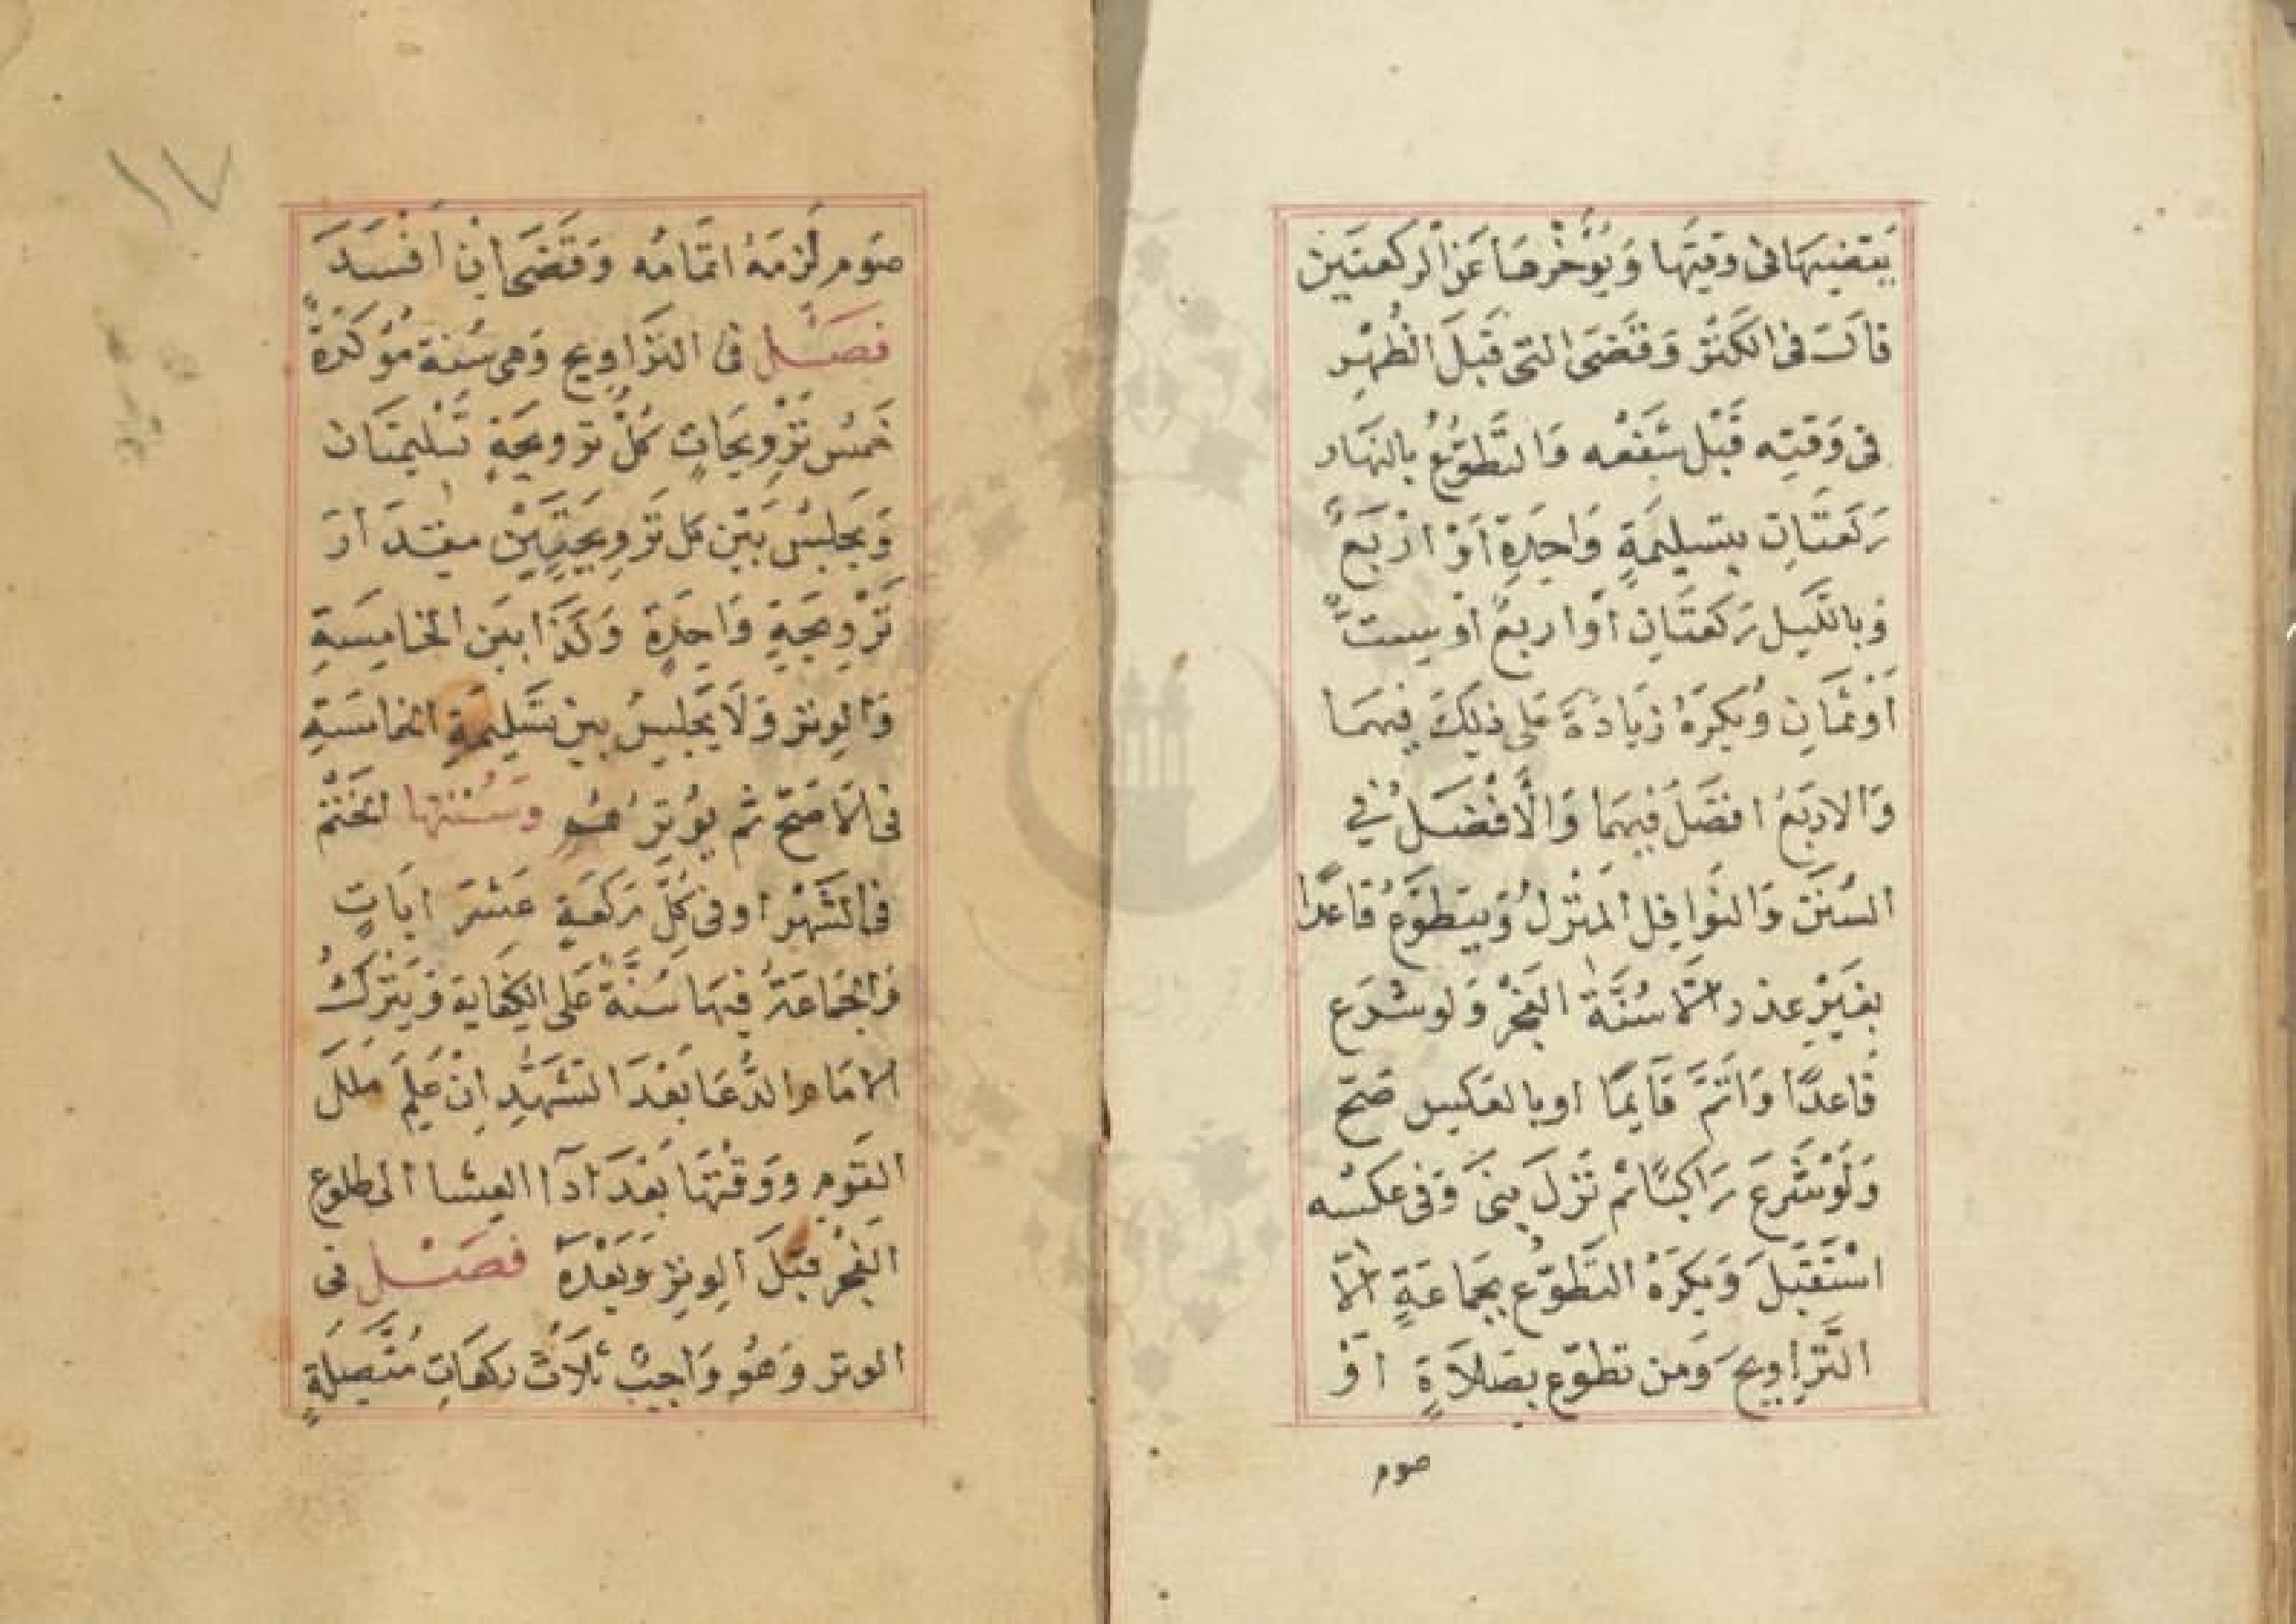 يَقضيهَا فى وَقتِهَا وَيُؤخرهَا عَن الركعتَين
قالَ فى الكَنز وَقَضَى التى قبلَ الظُهْرِ
فى وَقتِه قَبْل شَفعْه وَالتَّطوّعُ بِالنهَار
رَكعَتَانِ بتسليمَةٍ وَاحِدَةٍ اَوْ ارْبَعٌ
وَبالليل رَكعَتَانِ اَو اربعٌ اَو سِتٌ
اَوْ ثمَانِ وُيكرَهُ زيَادَة عَلى ذلِكَ فِيهمَا
وَالاربَعُ افضَلُ فِيهمَا وَالأَفضَلُ فِي
السُنَنِ وَالنوَافِل المَنْزلُ وَيَتطوّعُ قاعدًا
بغَيْرِ عذر الَّا سُنَّةُ الفَجْر وَلو شرَع
قاعدًا وَاَتَمَّ قَايمًا او بالعَكسِ صَحّ
وَلَوْ شَرَعَ رَاكبًا ثم نَزلَ بنىَ وَفى عكسْه
اسْتَقبَلَ وَيكرَهُ التطوّعُ بجَماعَةٍ الَّا
التَّرَاويحَ وَمن تطوّع بِصَلاَةٍ اَوْ
صوم
١٧
صَومٍ لَزمَهُ اتمَامُه وَقَضَاءُ انْ اَفْسَدَ
فصَلٌ فى التَرَاوِيح وَهى سُنة مُؤكدَةٌ
خمسُ تَرْوِيحَاتٍ كُلّ تروِيحَةٍ تَسْليمَتَان
وَيَجلسُ بَيْن كل تَروِيحَتَيْنِ مقدَارَ
تَرْوِيحَةٍ وَاحِدَةٍ وَكذَا بَين الخَامِسَةِ
وَالوِتر وَلَا يَجْلِسُ بين تَسْليمَةِ الخامسَةِ
فى الاَصَحّ ثم يوُتِرُ وَسُنَنتها الخَتْم
فى الشَهْر او فى كلِّ رَكعَةٍ عَشرَ ايَاتٍ
وَالجَمَاعَةُ فيهَا سُنَّةٌ عَلى الكِفاية وَيَتْركُ
الامَام الدُّعَا بَعْدَ التَّشَهُّدِ اِنْ عَلِمَ مللَ
القَوم وَوَقْتُهَا بَعْدَ اَدَآ العِشا الى طلوع
الفجْر قبْلَ الوِتر وَبَعْدَهُ فصَلٌ فى
الوتر وَهُو وَاجِبٌ ثلاَثُ ركعَاتٍ مُتَّصِلَةٍ